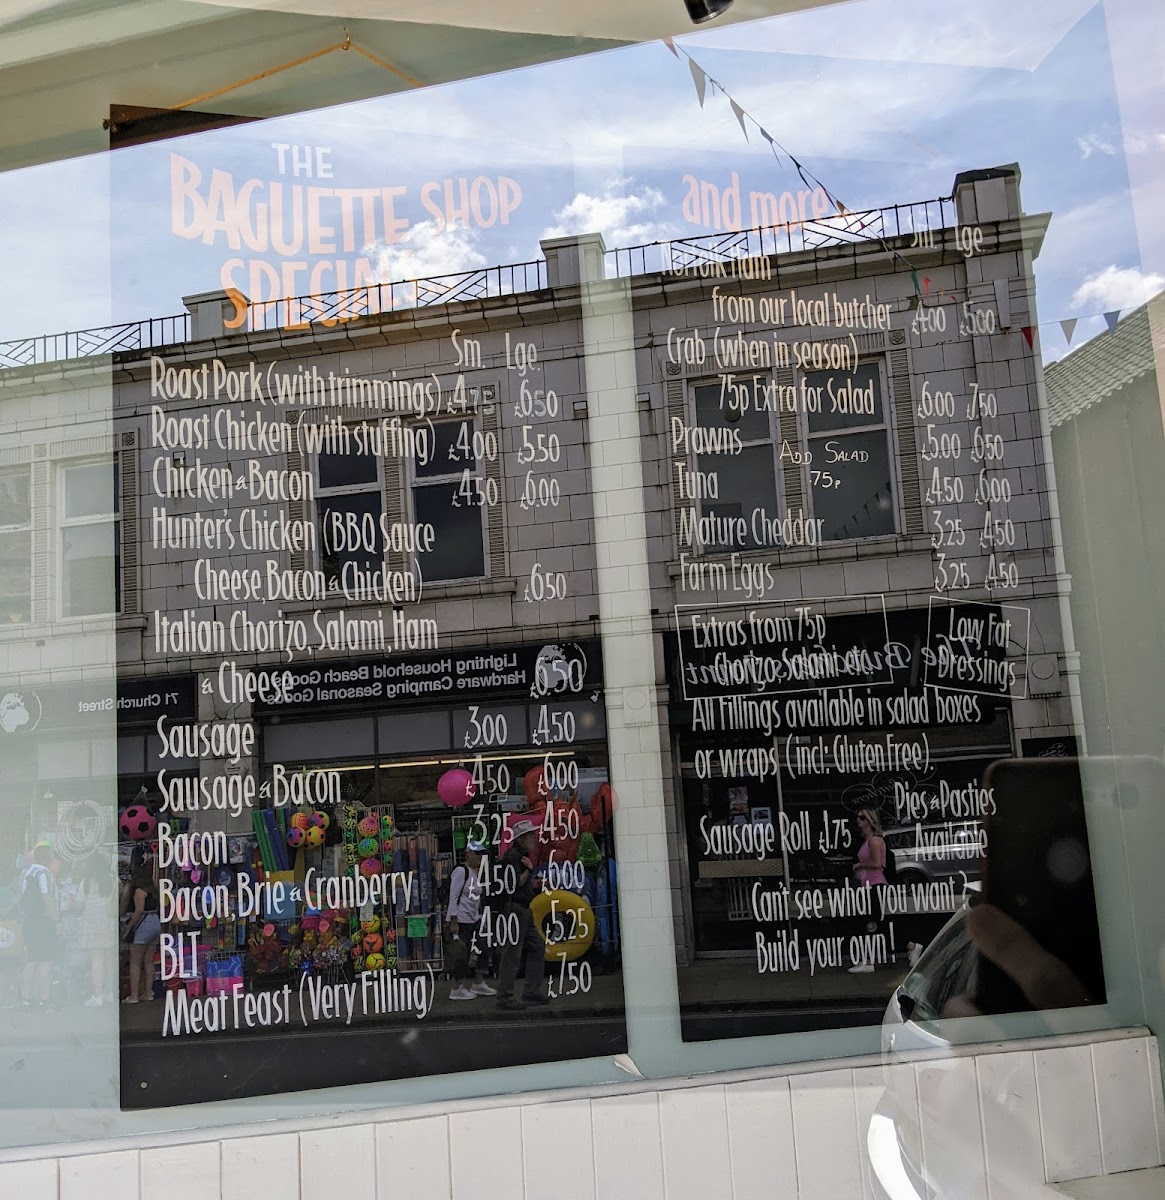 THE
BAGUETTE SHOP
SPECIALS
Sm. Lge.
Roast Pork (with trimmings) £4.75 £6.50
Roast Chicken (with stuffing) £4.00 £5.50
Chicken & Bacon £4.50 £6.00
Hunter's Chicken (BBQ Sauce
Cheese, Bacon & Chicken) £6.50
Italian Chorizo, Salami, Ham
& Cheese £6.50
Sausage £3.00 £4.50
Sausage & Bacon £4.50 £6.00
Bacon £3.25 £4.50
Bacon, Brie & Cranberry £4.50 £6.00
BLT £4.00 £5.25
Meat Feast (Very Filling) £7.50
and more
Sm Lge
Norfolk Ham
from our local butcher £4.00 £5.00
Crab (when in season)
75p Extra for Salad £6.00 £7.50
Prawns £5.00 £6.50
ADD SALAD
75p
Tuna £4.50 £6.00
Mature Cheddar £3.25 £4.50
Farm Eggs £3.25 £4.50
Extras from 75p
Chorizo, Salami etc.
Low Fat
Dressings
All Fillings available in salad boxes
or wraps (incl: Gluten Free).
Pies & Pasties
Available
Sausage Roll £1.75
Can't see what you want?
Build your own!
Lighting Household Beach Goods
Hardware Camping Seasonal Goods
71 Church Street